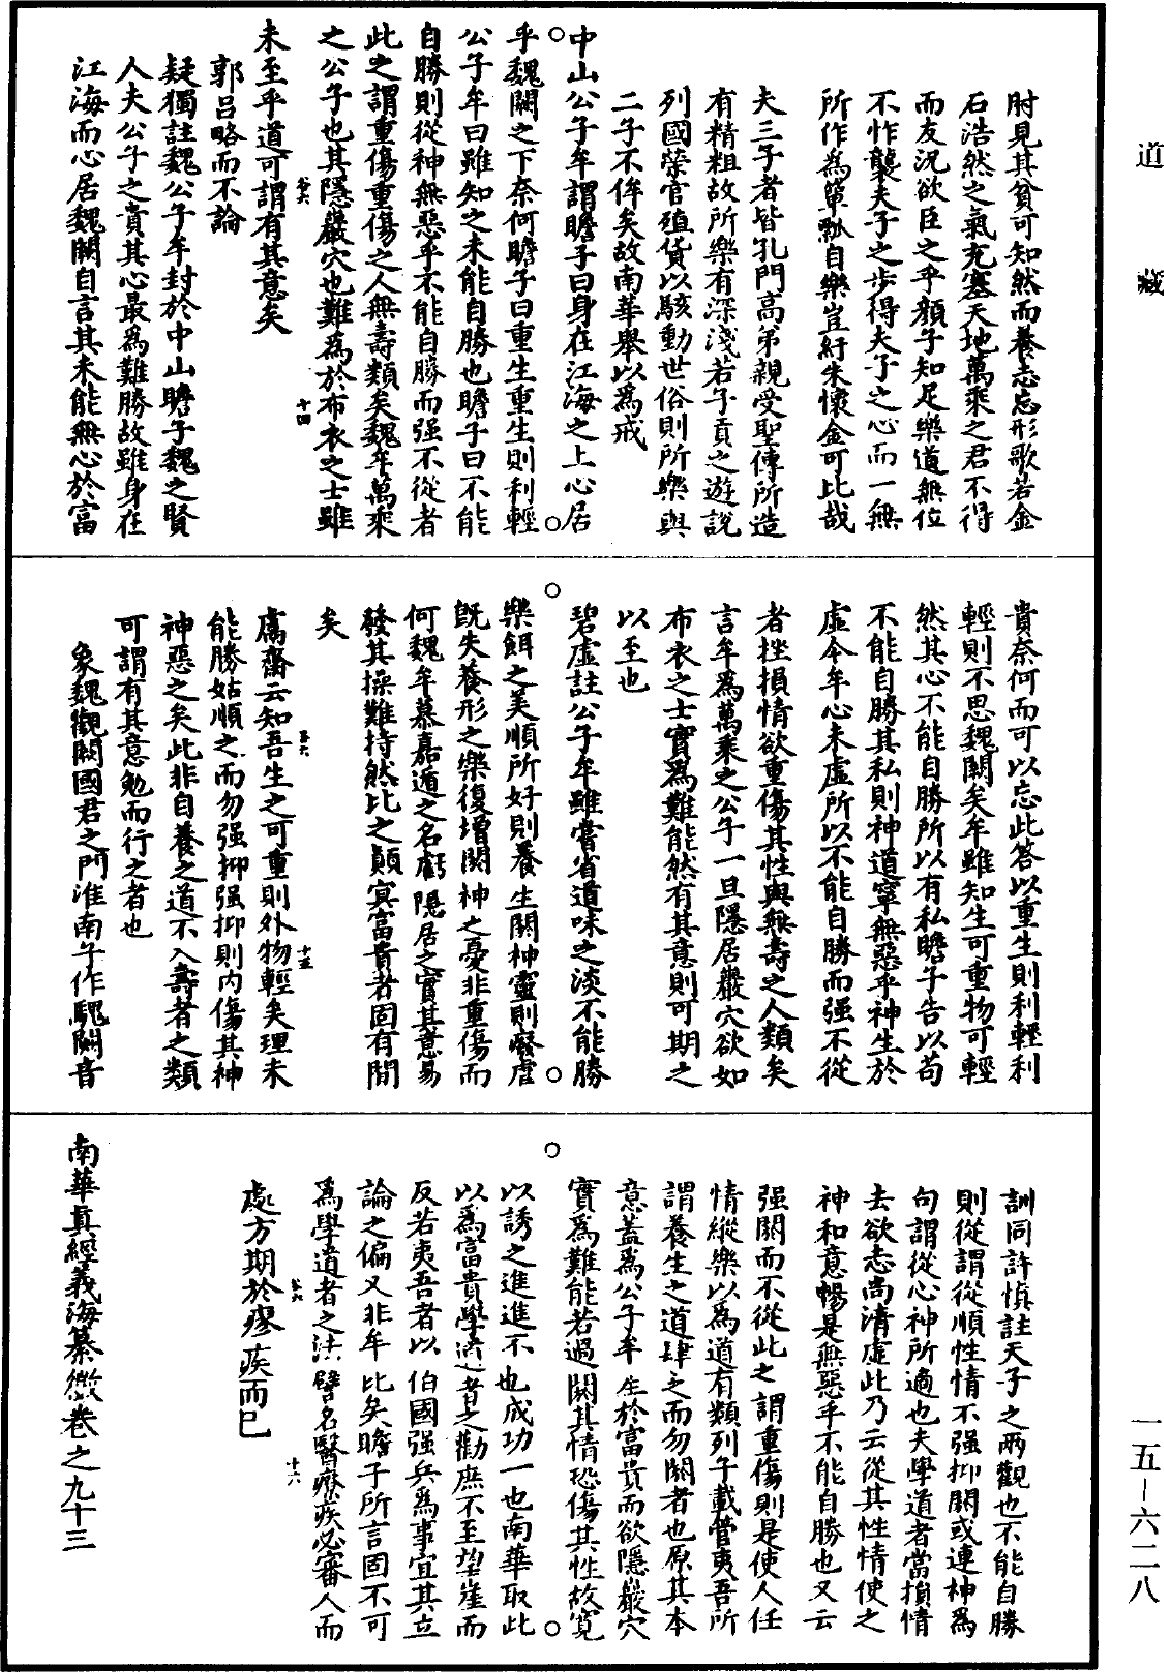 道藏
肘見其貧可知然而養志忘形歌若金
石浩然之氣充塞天地萬乘之君不得
而友況欲臣之乎顏子知足樂道無位
不怍襲夫子之步得夫子之心而一無
所作為簞瓢自樂豈紆朱懷金可比哉
夫三子者皆孔門高弟親受聖傳所造
有精粗故所樂有深淺若子貢之遊說
列國榮官殖貨以駭動世俗則所樂與
二子不侔矣故南華舉以為戒
中山公子牟謂瞻子曰身在江海之上心居
乎魏闕之下奈何瞻子曰重生重生則利輕
公子牟曰雖知之未能自勝也瞻子曰不能
自勝則從神無惡乎不能自勝而强不從者
此之謂重傷重傷之人無壽類矣魏牟萬乘
之公子也其隱巖穴也難為於布衣之士雖
十四
未至乎道可謂有其意矣
郭呂略而不論
疑獨註魏公子牟封於中山瞻子魏之賢
人夫公子之貴其心最為難勝故雖身在
江海而心居魏闕自言其未能無心於富
貴奈何而可以忘此答以重生則利輕利
輕則不思魏闕矣牟雖知生可重物可輕
然其心不能自勝所以有私瞻子告以苟
不能自勝其私則神道寧無惡乎神生於
虛今牟心未虛所以不能自勝而强不從
者挫損情欲重傷其性與無壽之人類矣
言牟為萬乘之公子一旦隱居巖穴欲如
布衣之士實為難能然有其意則可期之
以至也
碧虛註公子牟雖嘗省道味之淡不能勝
樂餌之美順所好則養生閼神靈則廢虐
既失養形之樂復增閼神之憂非重傷而
何魏牟慕嘉遁之名虧隱居之實其意易
發其操難持然比之顛冥富貴者固有間
矣
十五
鬳齋云知吾生之可重則外物輕矣理未
能勝姑順之而勿强抑强抑則內傷其神
神惡之矣此非自養之道不入壽者之類
可謂有其意勉而行之者也
象魏觀闕國君之門淮南子作魏闕音
訓同許慎註天子之兩觀也不能自勝
則從謂從順性情不强抑閼或連神為
句謂從心神所適也夫學道者當損情
去欲志尚清虛此乃云從其性情使之
神和意暢是無惡乎不能自勝也又云
强閼而不從此之謂重傷則是使人任
情縱樂以為道有類列子載管夷吾所
謂養生之道肆之而勿閼者也原其本
意蓋為公子牟生於富貴而欲隱巖穴
實為難能若過閼其情恐傷其性故寬
以誘之進進不也成功一也南華取此
以為富貴學道者之勸庶不至望崖而
反若夷吾者以伯國强兵為事宜其立
論之偏又非牟比矣瞻子所言固不可
為學道者之法譬名醫療疾必審人而
十六
處方期於瘳疾而已
南華真經義海纂微卷之九十三
一五—六二八